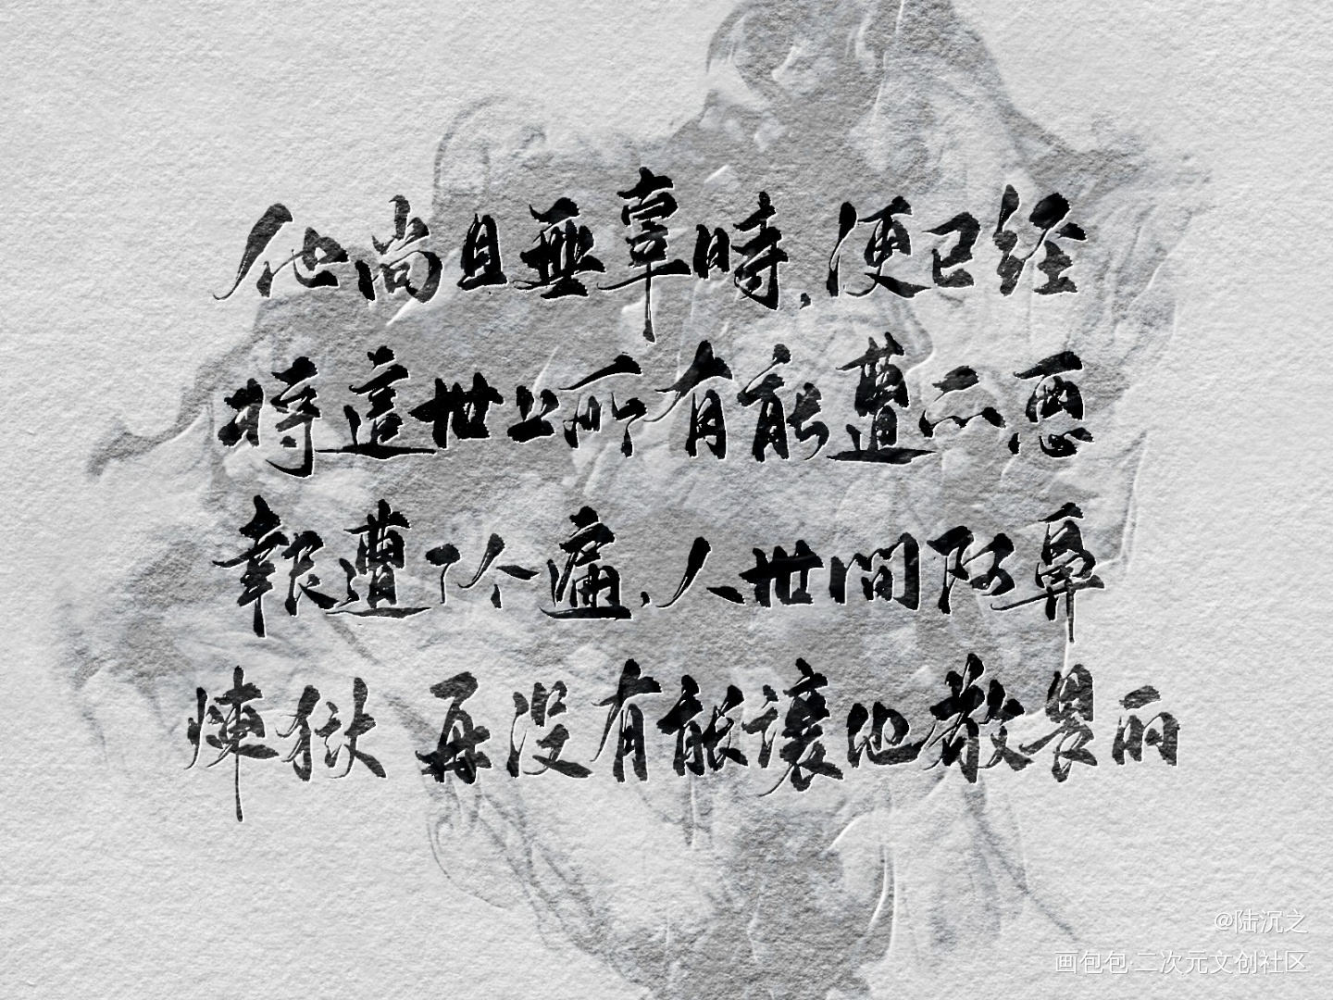 他尚且無辜時,便已经
将這世上所有能遭的惡
報遭了个遍,人世間阿鼻
煉獄 再没有能讓他敬畏的
@陆沉之
画包包·二次元文创社区